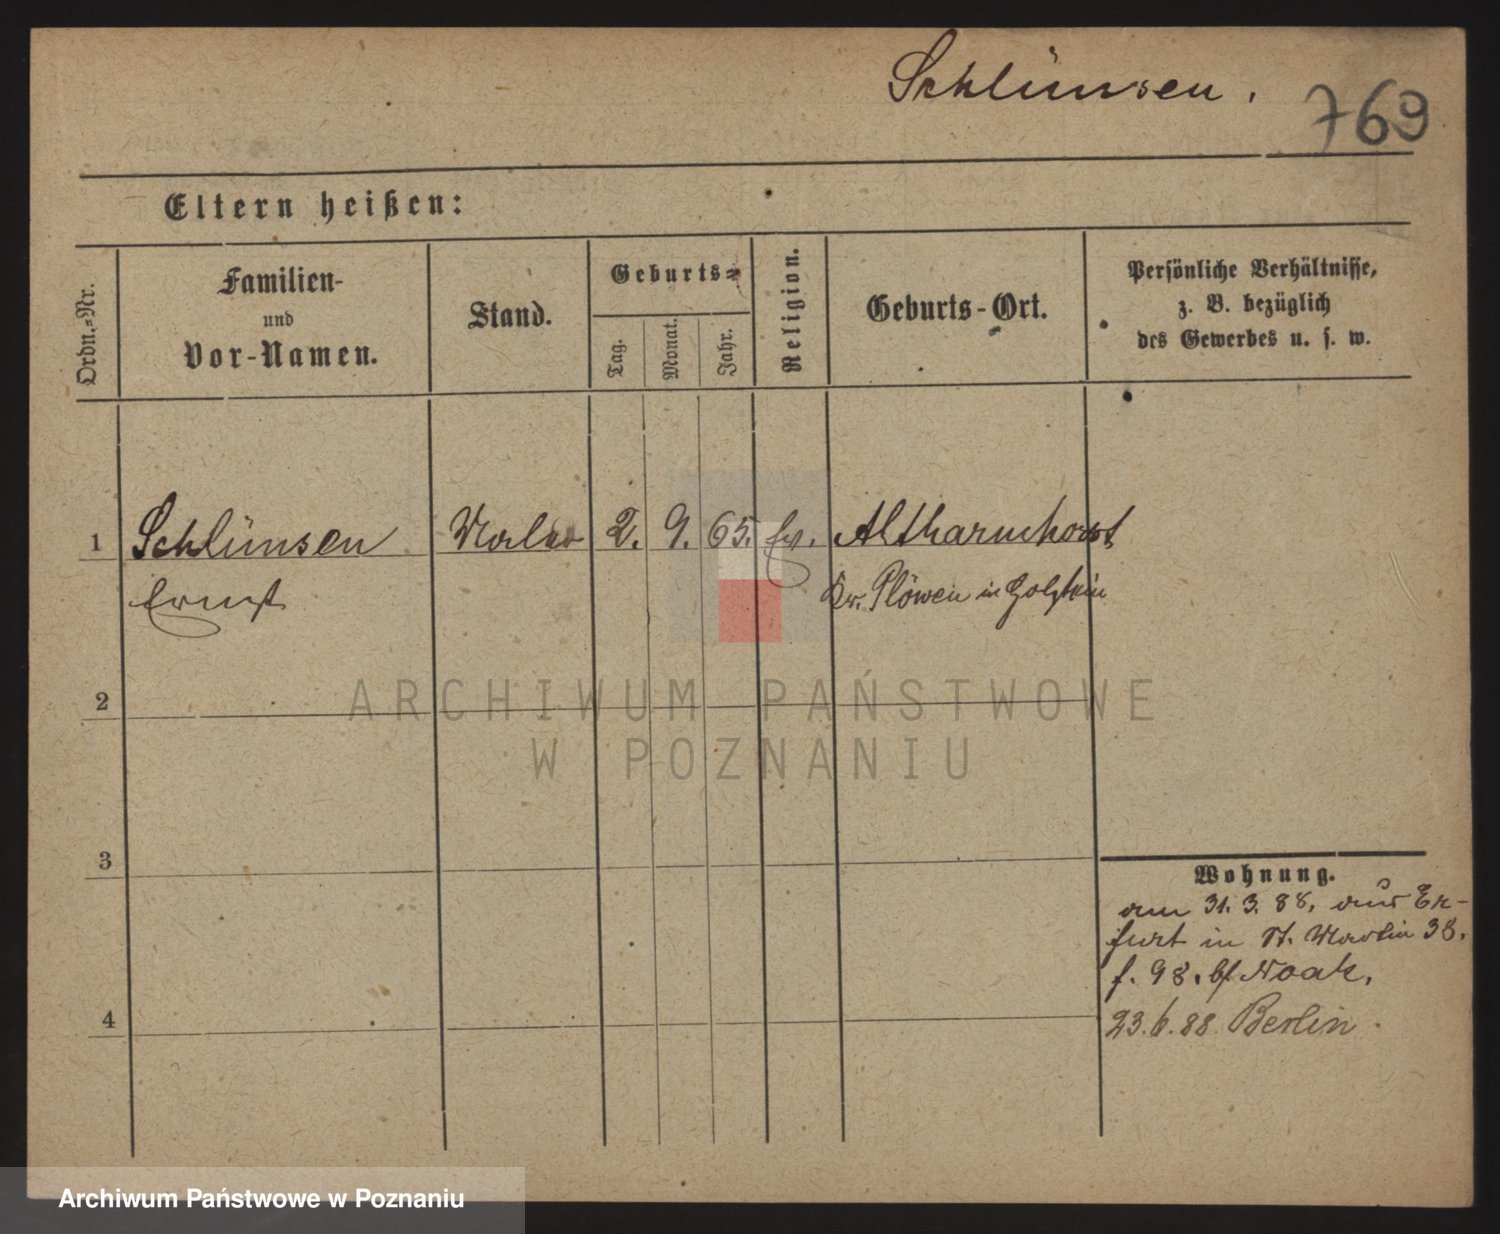 Schlünsen.
769
Eltern heißen:
Ordn.=Nr.
Familien-
und
Vor-Namen.
Stand.
Geburts=
Tag.
Monat.
Jahr.
Religion.
Geburts-Ort.
Persönliche Verhältnisse,
z. B. bezüglich
des Gewerbes u. s. w.
1 Schlünsen Maler 2. 9. 65. Ev. Altharmhorst
Ernst Kr. Plöwen in Holstein
2
ARCHIWUM PAŃSTWOWE
W POZNANIU
3
Wohnung.
am 31. 3. 88. aus Er-
furt in St. Martin 38.
f. 98. bf Noak.
4
23.6.88 Berlin.
Archiwum Państwowe w Poznaniu